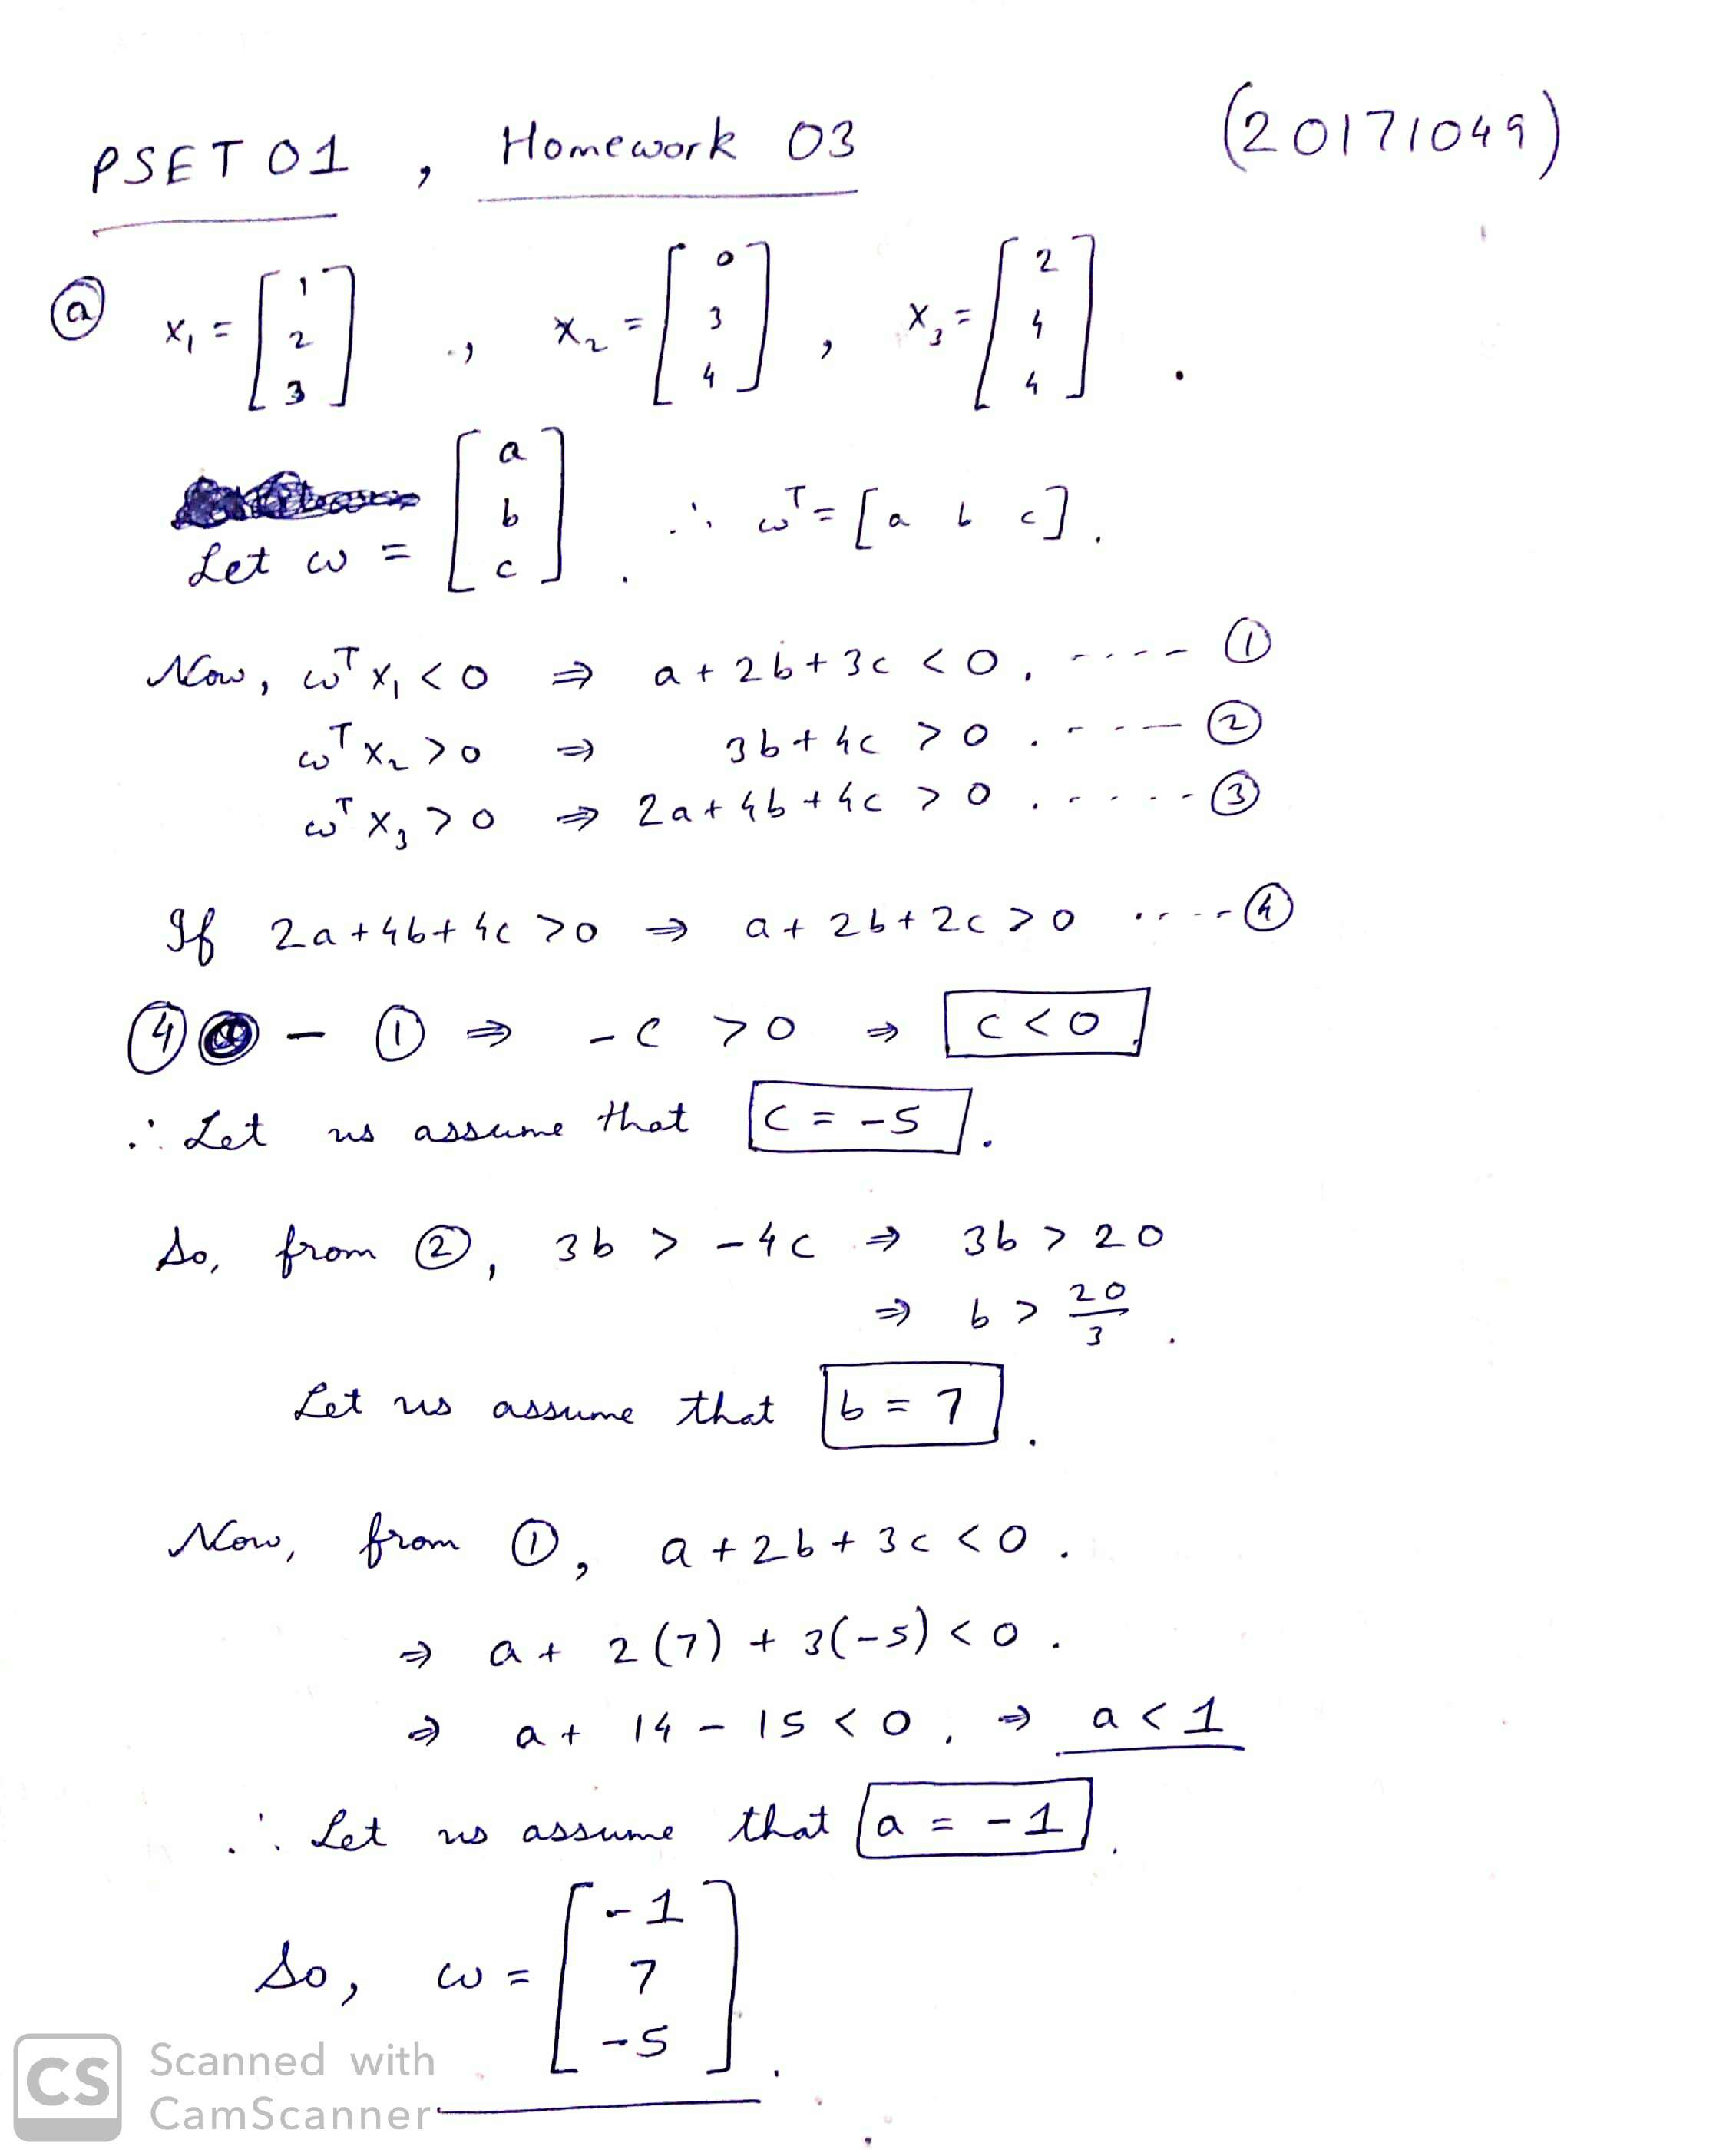 PSET 01 , Homework 03 (20171049)
ⓐ x₁ = [1 2 3] , x₂ = [0 3 4] , x₃ = [2 4 4] .
Let ω = [a b c] . ∴ ωᵀ = [a b c] .
Now, ωᵀx₁ < 0 ⇒ a + 2b + 3c < 0 . ---- ①
ωᵀx₂ > 0 ⇒ 3b + 4c > 0 . ---- ②
ωᵀx₃ > 0 ⇒ 2a + 4b + 4c > 0 . ---- ③
If 2a + 4b + 4c > 0 ⇒ a + 2b + 2c > 0 ---- ④
④ - ① ⇒ -c > 0 ⇒ c < 0
∴ Let us assume that c = -5 .
So, from ②, 3b > -4c ⇒ 3b > 20
⇒ b > 20/3 .
Let us assume that b = 7 .
Now, from ①, a + 2b + 3c < 0 .
⇒ a + 2(7) + 3(-5) < 0 .
⇒ a + 14 - 15 < 0 . ⇒ a < 1
∴ Let us assume that a = -1 .
So, ω = [-1 7 -5] .
CS Scanned with
CamScanner